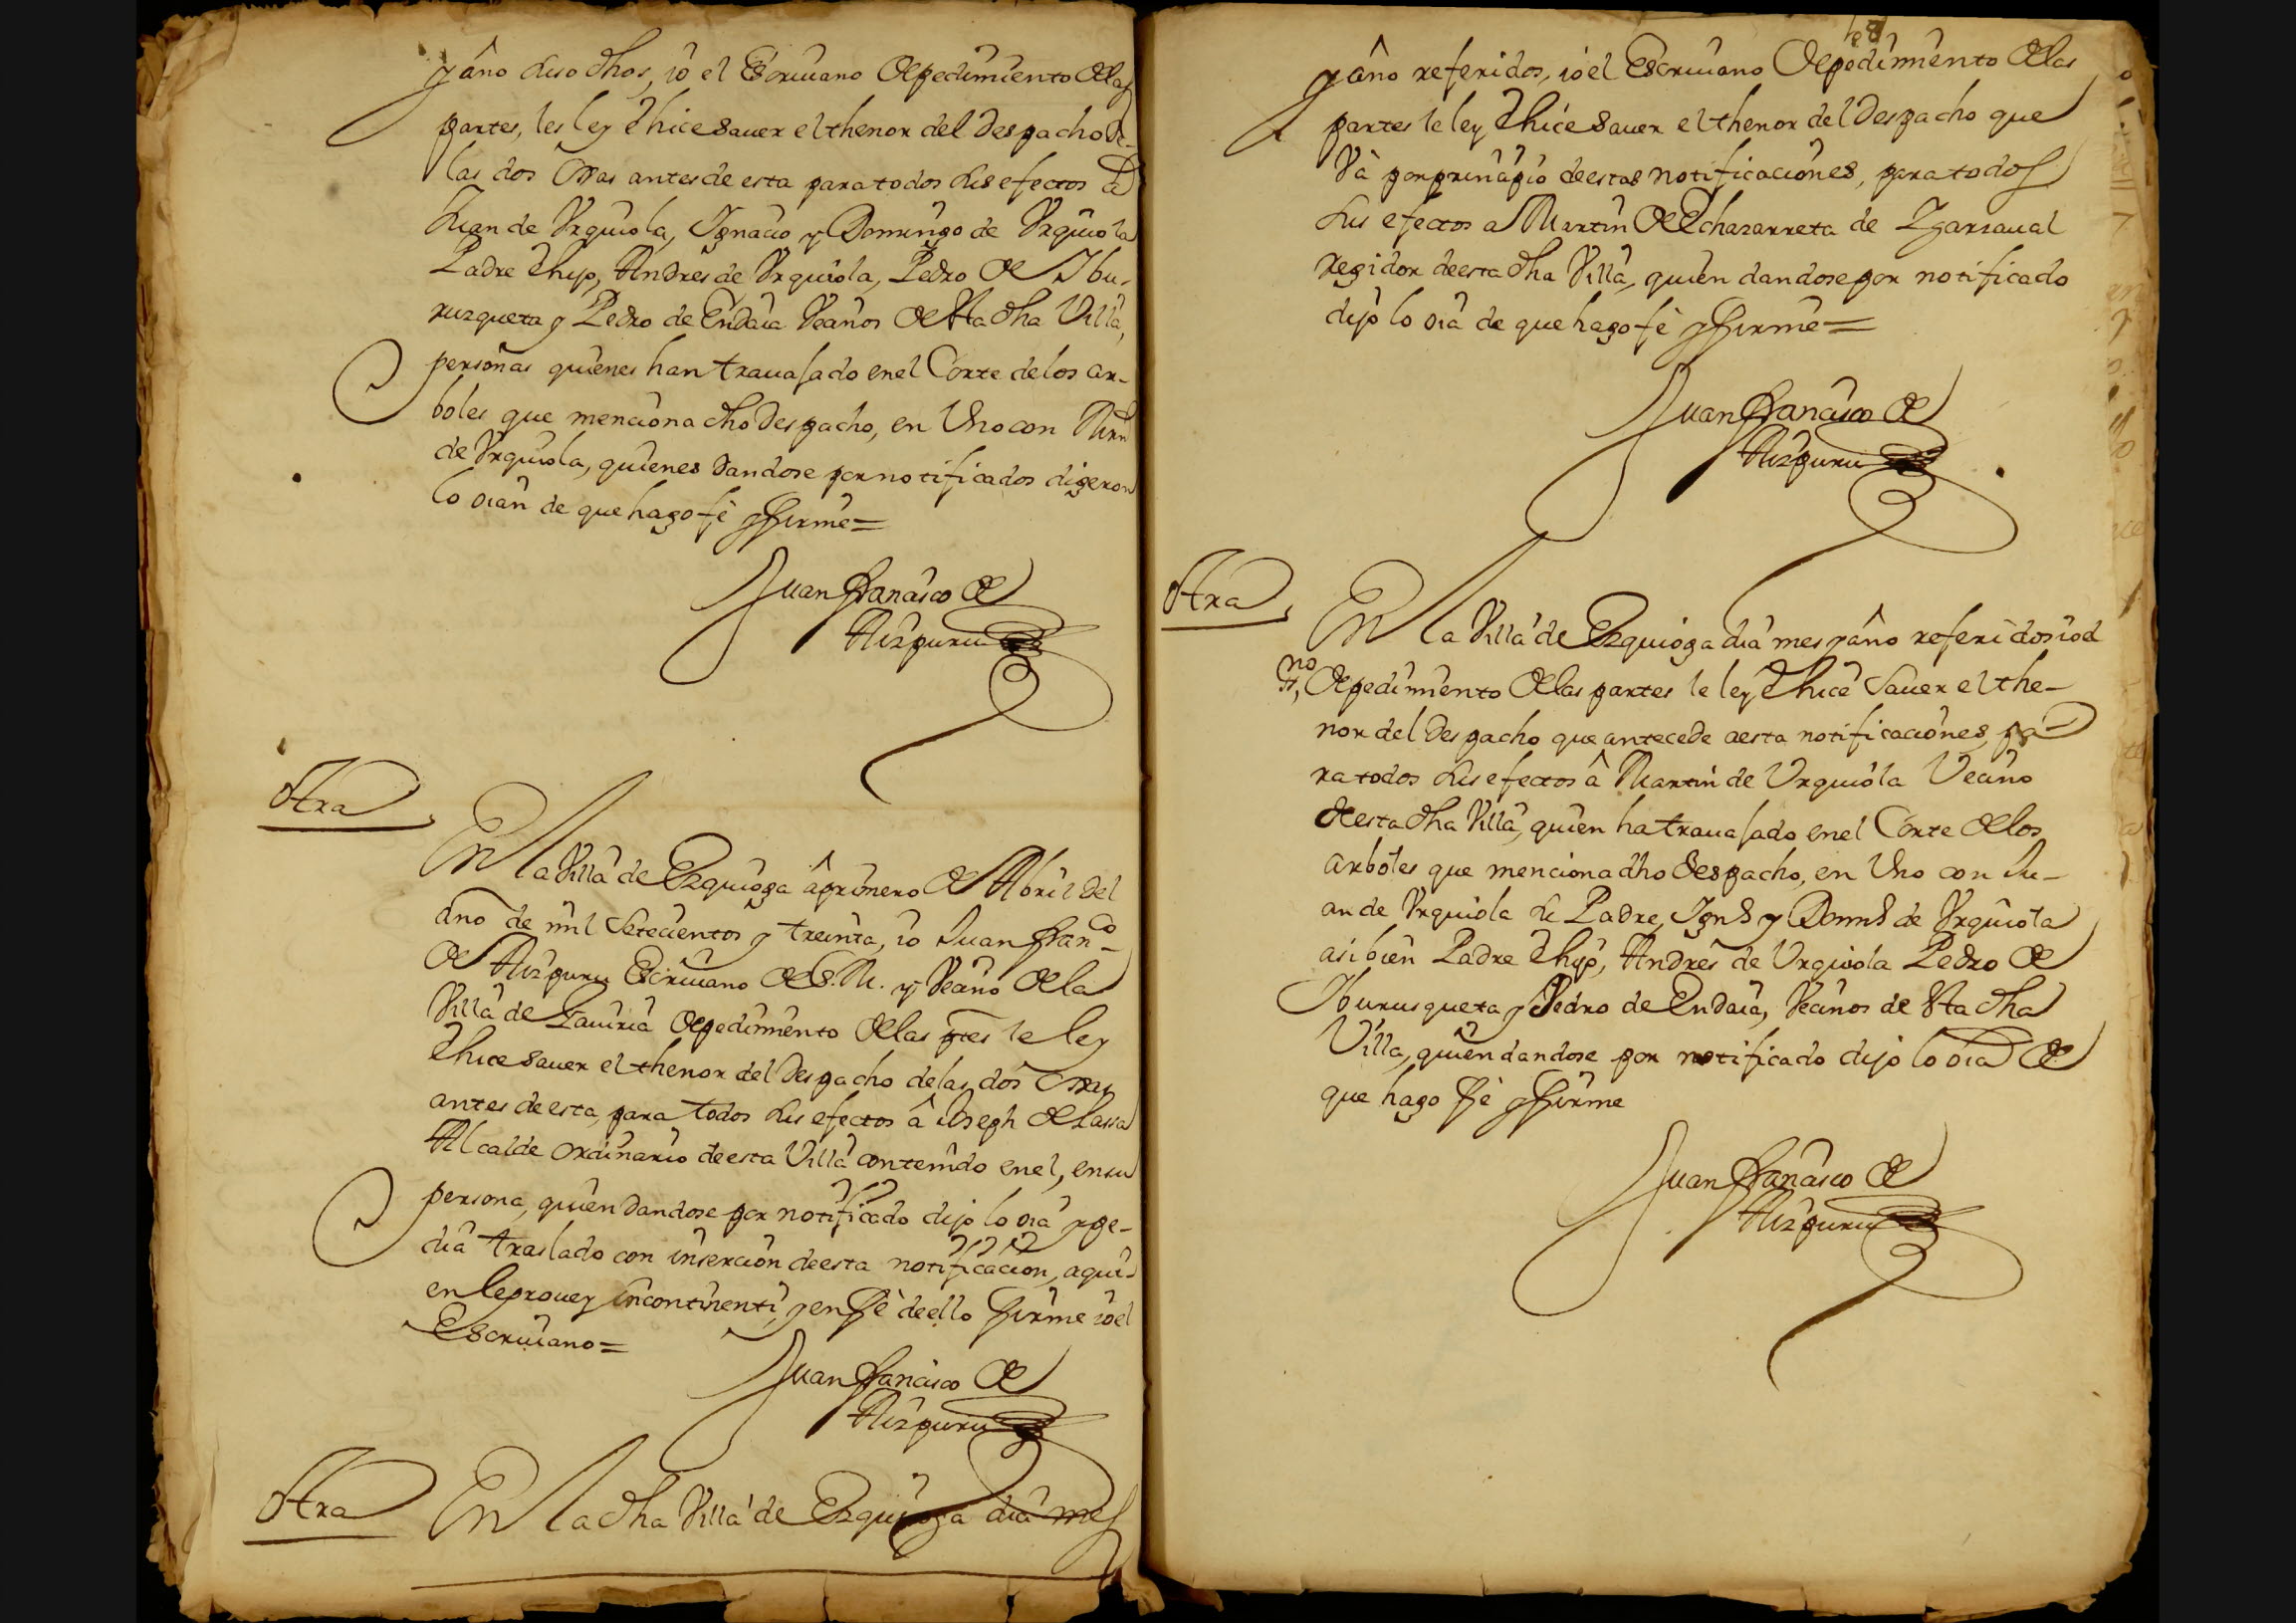 y año suso dhos, io el Escriuano de pedimiento de las
partes, les ley e hice sauer el thenor del despacho de
las dos ojas antes de esta para todos sus efectos a
Juan de Vrquiola, Ignacio y Domingo de Vrquiola
Padre e hijo, Andres de Vrquiola, Pedro de Ibu-
ruzqueta y Pedro de Endaia Vecinos de Sta dha Villa,
personas quienes han trauajado en el Corte de los ar-
boles que menciona dho despacho, en Uno con Mrn
de Vrquiola, quienes dandose por notificados digeron
lo oian de que hago fe y firme=
Juan Francisco de
Aizpuru
Otra
En la Villa de Ezquioga â primero de Abril del
año de mil Setecientos y treinta, io Juan Franco
de Aizpuru Escriuano de S.M. y Vecino de la
Villa de Gauiria de pedimiento de las ptes le ley
e hice sauer el thenor del despacho de las dos ojas
antes de esta, para todos sus efectos â Joseph de Lassa
Alcalde ordinario de esta Villa contenido en el, en su
persona, quien dandose por notificado dijo lo oia y pe-
dia traslado con insercion de esta notificacion, a qui-
en le prouey incontinenti, y en Fè de ello firme io el
Escriuano=
Juan Francisco de
Aizpuru
Otra
En la dha Villa de Ezquioga dia mes
y año referidos, io el Escriuano de pedimiento de las
partes le ley e hice sauer el thenor del despacho que
Va por principio de estas notificaciones, para todos
sus efectos a Martin de Echazarreta de Igarzaual
regidor de esta dha Villa, quien dandose por notificado
dijo lo oia de que hago fè y firme=
Juan Francisco de
Aizpuru
Otra
En la Villa de Ezquioga dia mes y año referidos io el
no de pedimiento de las partes le ley e hice sauer el the-
nor del despacho que antecede a esta notificaciones, pa
ra todos sus efectos â Martin de Urquiola Vecino
de esta dha Villa, quien ha trauajado en el Corte de los
arboles que menciona dho despacho, en Uno con Ju-
an de Vrquiola su Padre, Igns y Doms de Vrquiola
asi bien Padre e hijo, Andres de Urquiola Pedro de
Iburusqueta y Pedro de Endaia, Vecinos de Sta dha
Villa, quien dandose por notificado dijo lo oia de
que hago Fè y firme
Juan Francisco de
Aizpuru